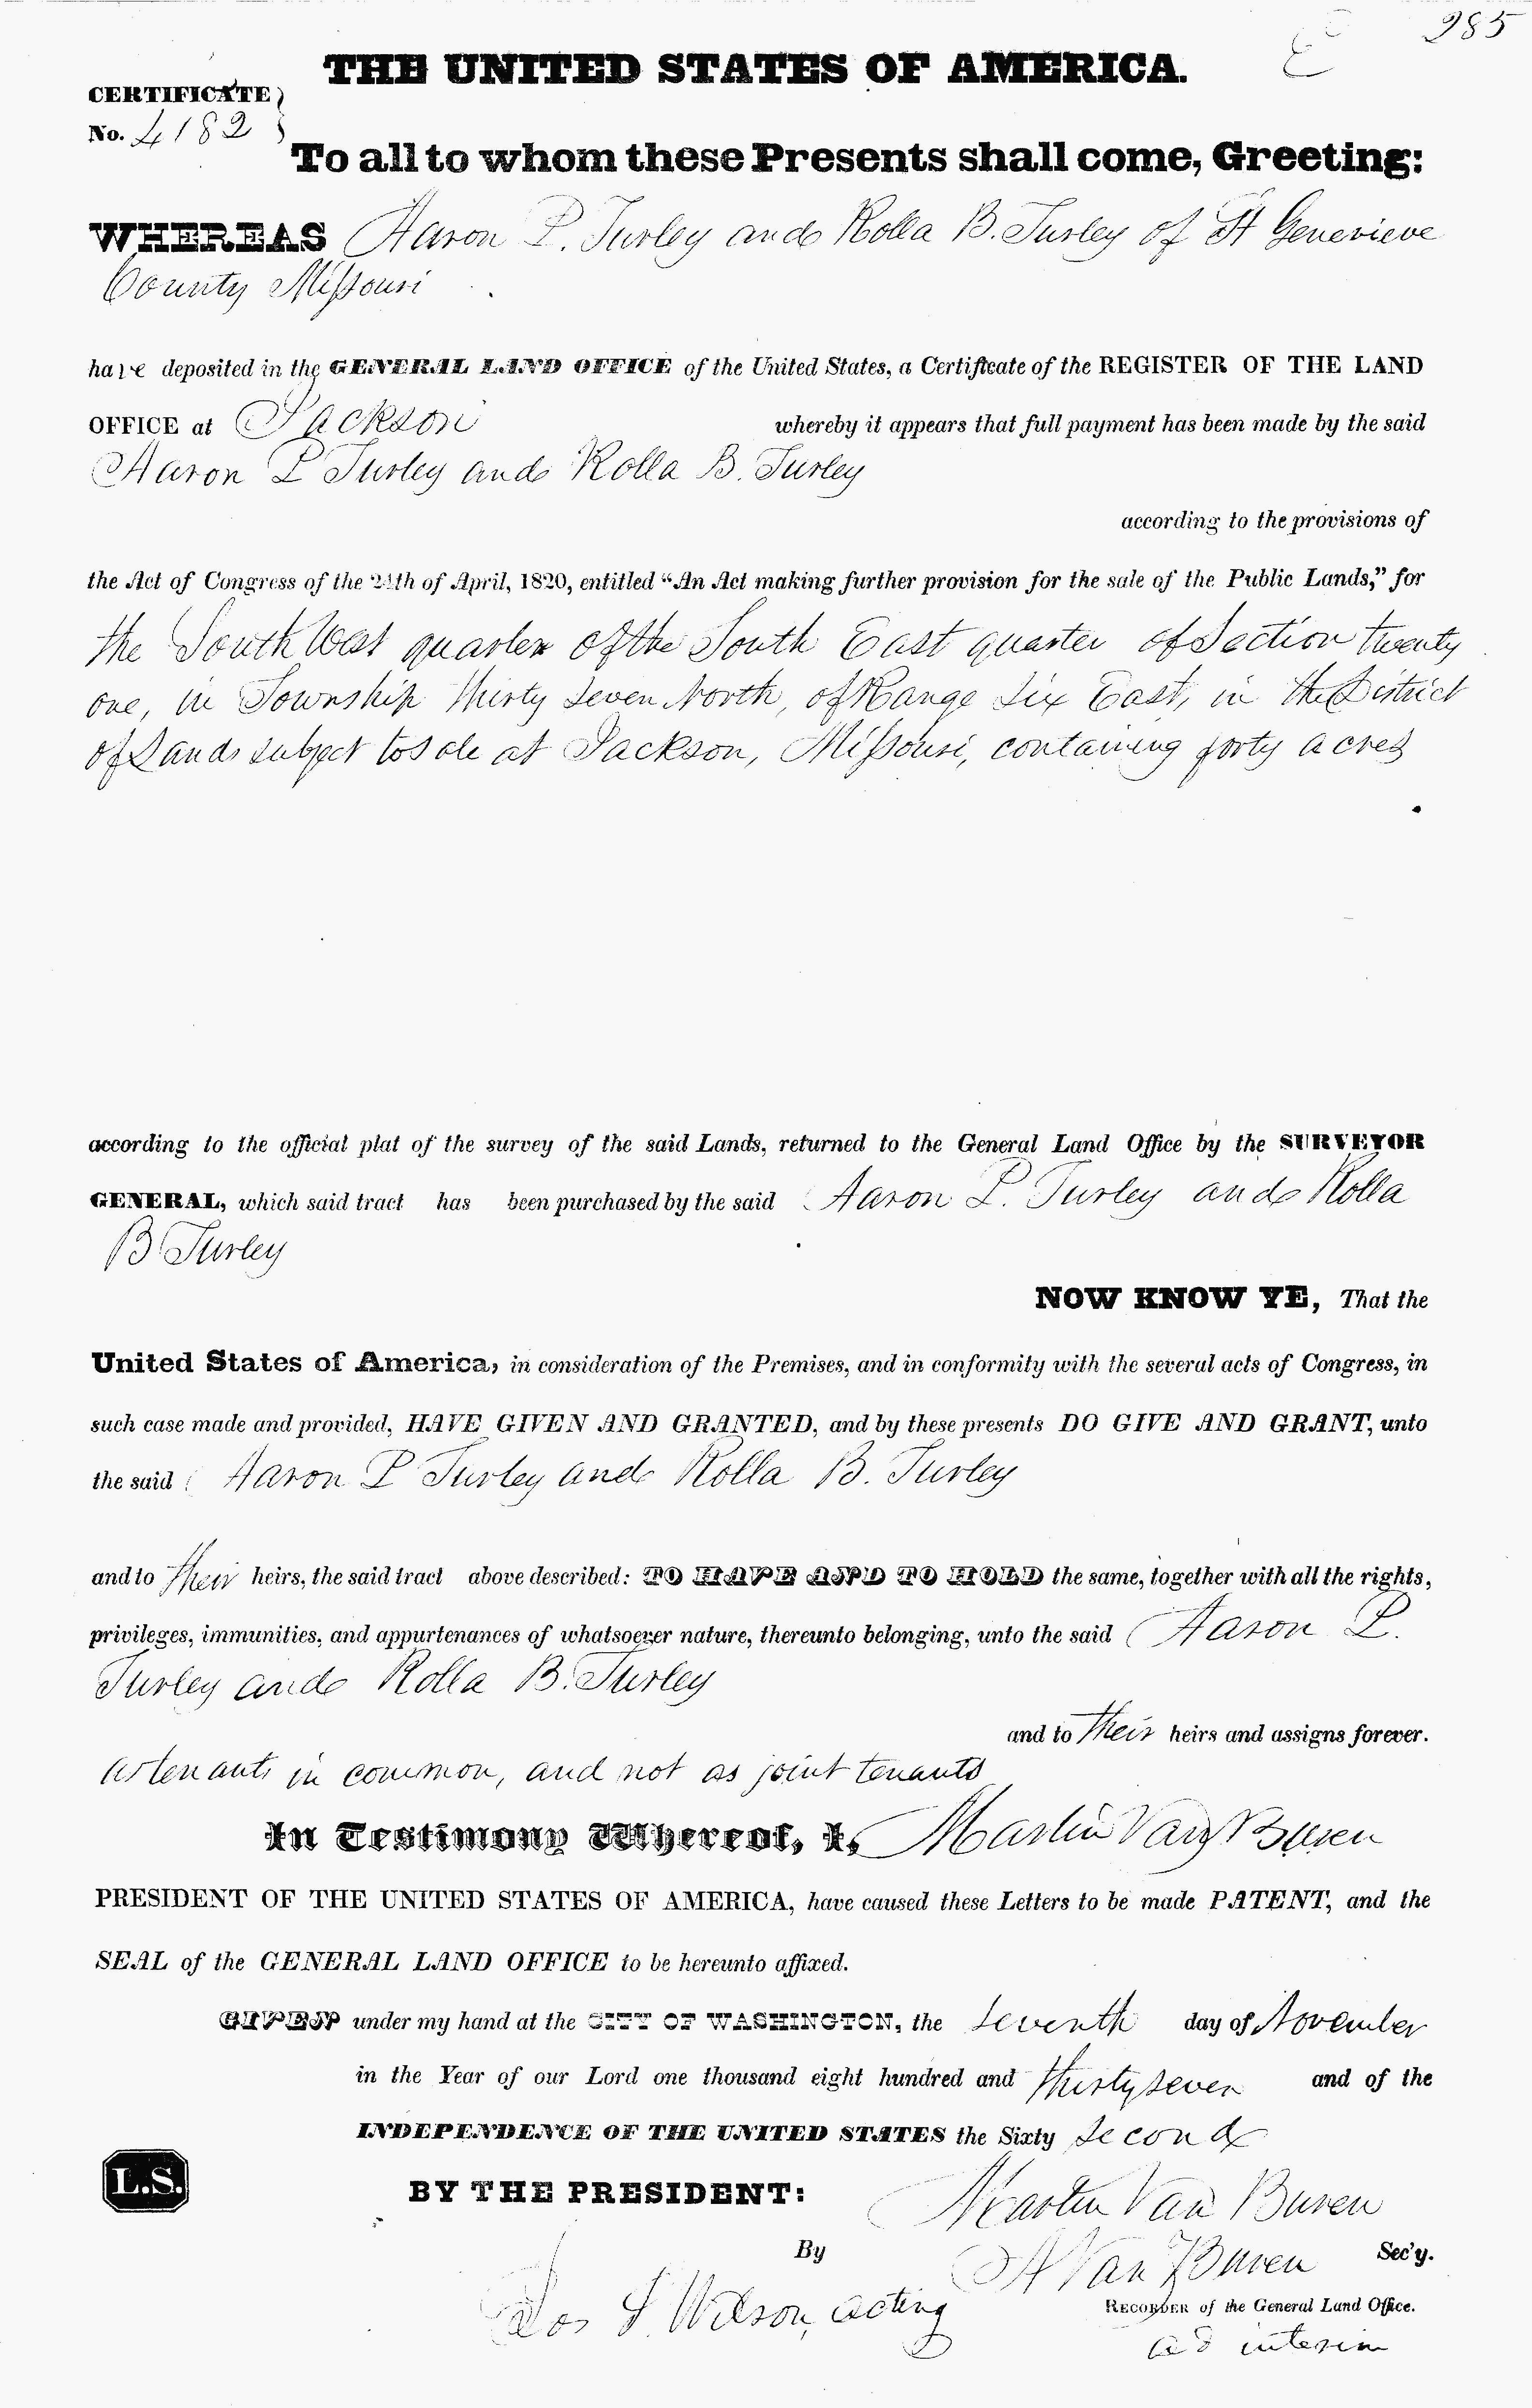 985
THE UNITED STATES OF AMERICA.
CERTIFICATE
No. 4182
To all to whom these Presents shall come, Greeting:
WHEREAS Aaron P. Turley and Rolla B. Turley of St Genevieve
County Missouri
have deposited in the GENERAL LAND OFFICE of the United States, a Certificate of the REGISTER OF THE LAND
OFFICE at Jackson whereby it appears that full payment has been made by the said
Aaron P Turley and Rolla B. Turley
according to the provisions of
the Act of Congress of the 24th of April, 1820, entitled "An Act making further provision for the sale of the Public Lands," for
the South West quarter of the South East quarter of Section twenty
one, in Township thirty seven North, of Range Six East, in the District
of Lands subject to sale at Jackson, Missouri, containing forty acres
according to the official plat of the survey of the said Lands, returned to the General Land Office by the SURVEYOR
GENERAL, which said tract has been purchased by the said Aaron P. Turley and Rolla
B Turley
NOW KNOW YE, That the
United States of America, in consideration of the Premises, and in conformity with the several acts of Congress, in
such case made and provided, HAVE GIVEN AND GRANTED, and by these presents DO GIVE AND GRANT, unto
the said Aaron P Turley and Rolla B. Turley
and to their heirs, the said tract above described: TO HAVE AND TO HOLD the same, together with all the rights,
privileges, immunities, and appurtenances of whatsoever nature, thereunto belonging, unto the said Aaron P.
Turley and Rolla B. Turley
and to their heirs and assigns forever.
as tenants in common, and not as joint tenants
In Testimony Whereof, I, Martin Van Buren
PRESIDENT OF THE UNITED STATES OF AMERICA, have caused these Letters to be made PATENT, and the
SEAL of the GENERAL LAND OFFICE to be hereunto affixed.
GIVEN under my hand at the CITY OF WASHINGTON, the Seventh day of November
in the Year of our Lord one thousand eight hundred and thirty seven and of the
INDEPENDENCE OF THE UNITED STATES the Sixty Second
L.S.
BY THE PRESIDENT: Martin Van Buren
By A Van Buren Sec'y.
Jos S. Wilson, acting RECORDER of the General Land Office.
ad interim